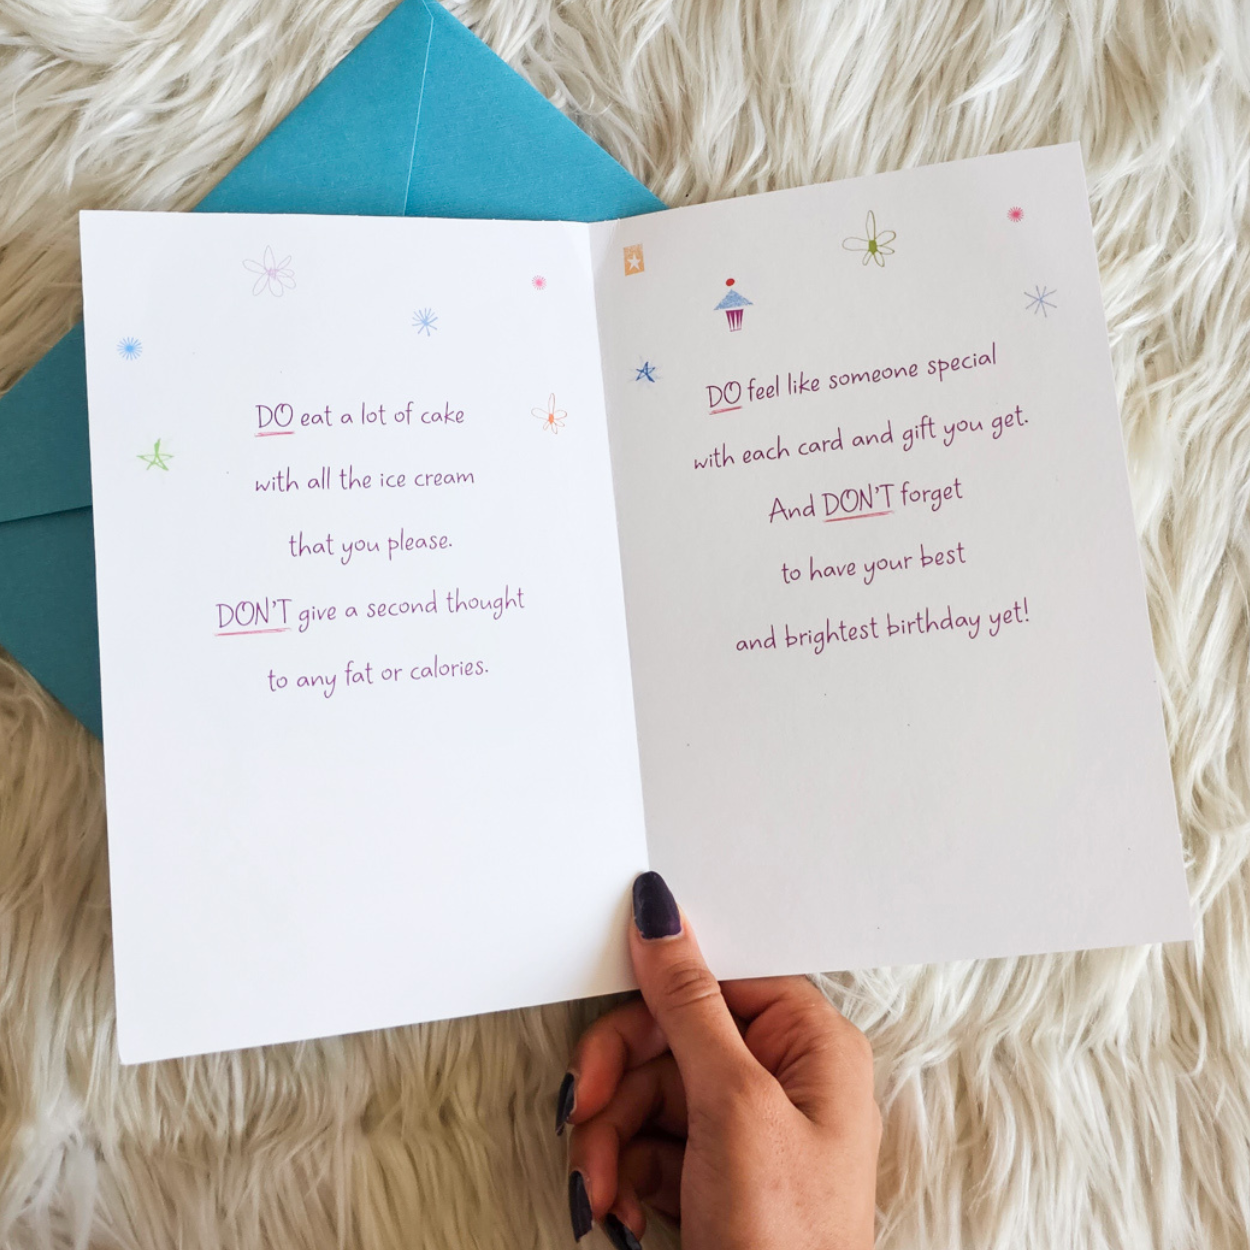 DO eat a lot of cake
with all the ice cream
that you please.
DON'T give a second thought
to any fat or calories.
DO feel like someone special
with each card and gift you get.
And DON'T forget
to have your best
and brightest birthday yet!